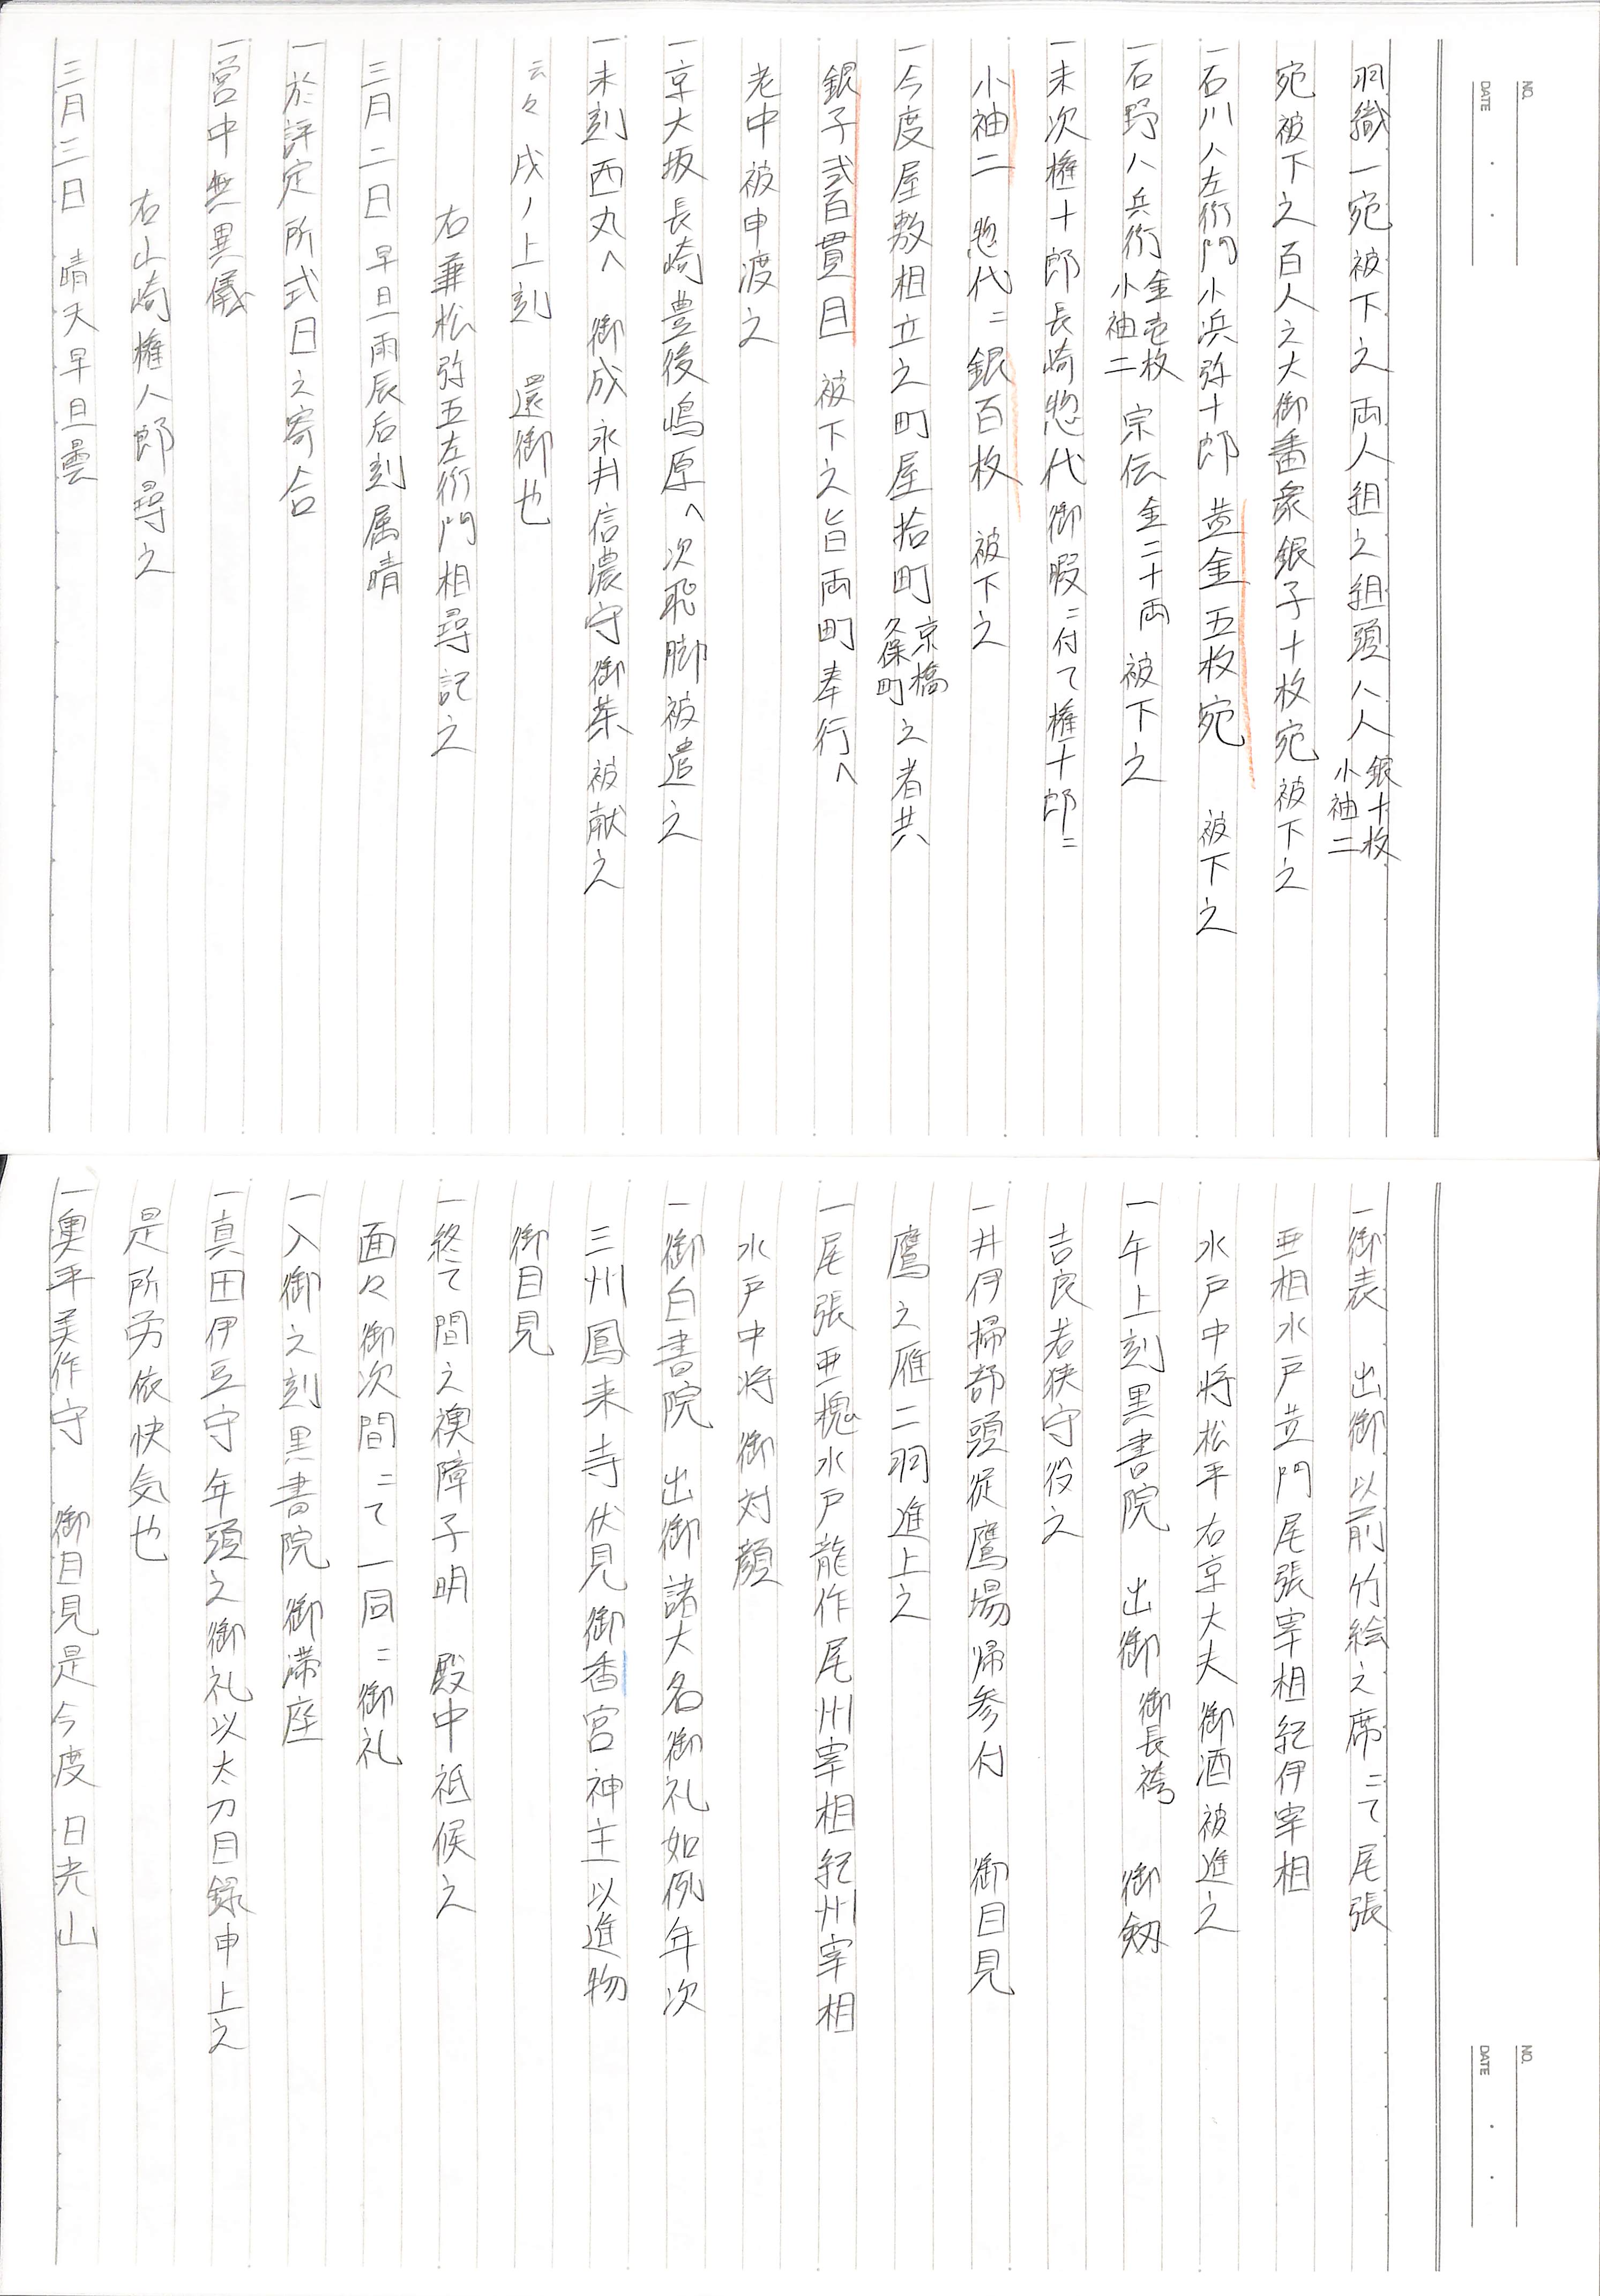 NO.
DATE
羽織一宛被下之両人組之組頭八人銀十枚小袖二
宛被下之百人之大御番衆銀子十枚宛被下之
一石川八左衛門小浜弥十郎 黄金五枚宛 被下之
一石野八兵衛金壱枚小袖二 宗伝 金二十両 被下之
一末次権十郎長崎惣代御暇ニ付て権十郎ニ
小袖二 惣代ニ銀百枚 被下之
一今度屋敷相立之町屋拾町京橋久保町之者共
銀子弐百貫目 被下之旨両町奉行へ
老中被申渡之
一京大坂長崎豊後嶋原へ次飛脚被遣之
一未刻西丸へ 御成永井信濃守御茶被献之
云々 戌ノ上刻 還御也
右兼松弥五左衛門相尋記之
三月二日 早旦雨辰后刻属晴
一於評定所式日之寄合
一営中無異儀
右山崎権八郎尋之
三月三日 晴天早旦曇
NO.
DATE
一御表 出御 以前竹絵之席ニて尾張
亜相水戸黄門尾張宰相紀伊宰相
水戸中将松平右京大夫御酒被進之
一午上刻黒書院 出御 御長袴 御剱
吉良若狭守役之
一井伊掃部頭従鷹場帰参付 御目見
鷹之雁二羽進上之
一尾張亜槐水戸龍作尾州宰相紀州宰相
水戸中将 御対顔
一御白書院 出御諸大名御礼如例年次
三州鳳来寺伏見御香宮神主以進物
御目見
一終て間之襖障子明 殿中祗候之
面々御次間ニて一同ニ御礼
一入御之刻黒書院 御滞座
一真田伊豆守年頭之御礼以太刀目録申上之
是所労依快気也
一奥平美作守 御目見是今度日光山